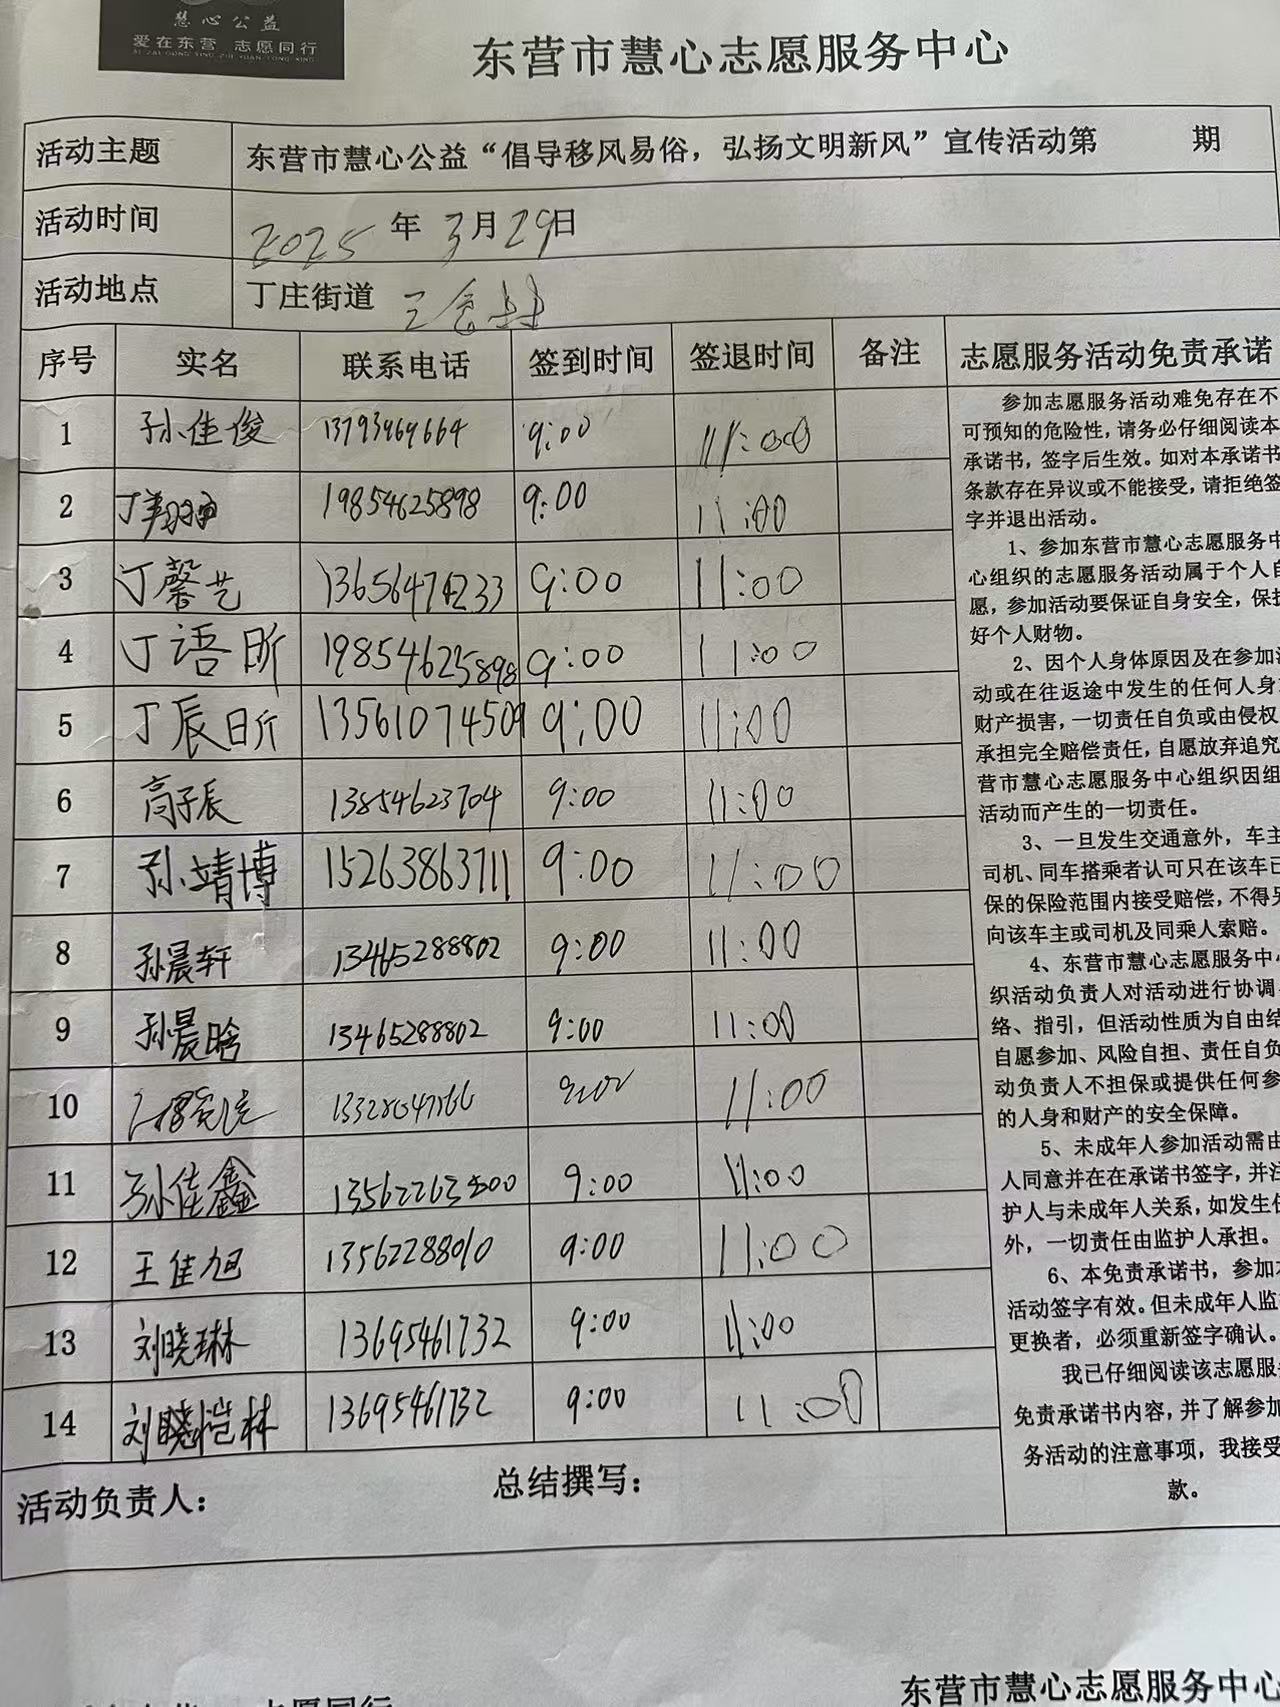 慧心公益
爱在东营 志愿同行
AI ZAI DONG YING ZHI YUAN TONG XING
东营市慧心志愿服务中心
活动主题 东营市慧心公益“倡导移风易俗，弘扬文明新风”宣传活动第 期
活动时间 2025 年 3月29日
活动地点 丁庄街道 三合村
序号 实名 联系电话 签到时间 签退时间 备注
1 孙佳俊 13793969664 9:00 11:00
2 丁 19854625898 9:00 11:00
3 丁馨艺 13656474233 9:00 11:00
4 丁语昕 19854625898 9:00 11:00
5 丁辰昕 13561074509 9:00 11:00
6 高子辰 13854623704 9:00 11:00
7 孙靖博 15263863711 9:00 11:00
8 孙晨轩 13465288802 9:00 11:00
9 孙晨晗 13465288802 9:00 11:00
10 9:00 11:00
11 孙佳鑫 9:00 11:00
12 王佳旭 13562288010 9:00 11:00
13 刘晓琳 13695461732 9:00 11:00
14 刘晓恺林 13695461732 9:00 11:00
活动负责人： 总结撰写：
志愿服务活动免责承诺
参加志愿服务活动难免存在不
可预知的危险性，请务必仔细阅读本
承诺书，签字后生效。如对本承诺书
条款存在异议或不能接受，请拒绝签
字并退出活动。
1、参加东营市慧心志愿服务中
心组织的志愿服务活动属于个人自
愿，参加活动要保证自身安全，保护
好个人财物。
2、因个人身体原因及在参加活
动或在往返途中发生的任何人身
财产损害，一切责任自负或由侵权
承担完全赔偿责任，自愿放弃追究
营市慧心志愿服务中心组织因组
活动而产生的一切责任。
3、一旦发生交通意外，车主
司机、同车搭乘者认可只在该车已
保的保险范围内接受赔偿，不得另
向该车主或司机及同乘人索赔。
4、东营市慧心志愿服务中心
织活动负责人对活动进行协调、
络、指引，但活动性质为自由结
自愿参加、风险自担、责任自负
动负责人不担保或提供任何参
的人身和财产的安全保障。
5、未成年人参加活动需由
人同意并在在承诺书签字，并注
护人与未成年人关系，如发生
外，一切责任由监护人承担。
6、本免责承诺书，参加
活动签字有效。但未成年人监
更换者，必须重新签字确认。
我已仔细阅读该志愿服
免责承诺书内容，并了解参加
务活动的注意事项，我接受
款。
志愿同行
东营市慧心志愿服务中心